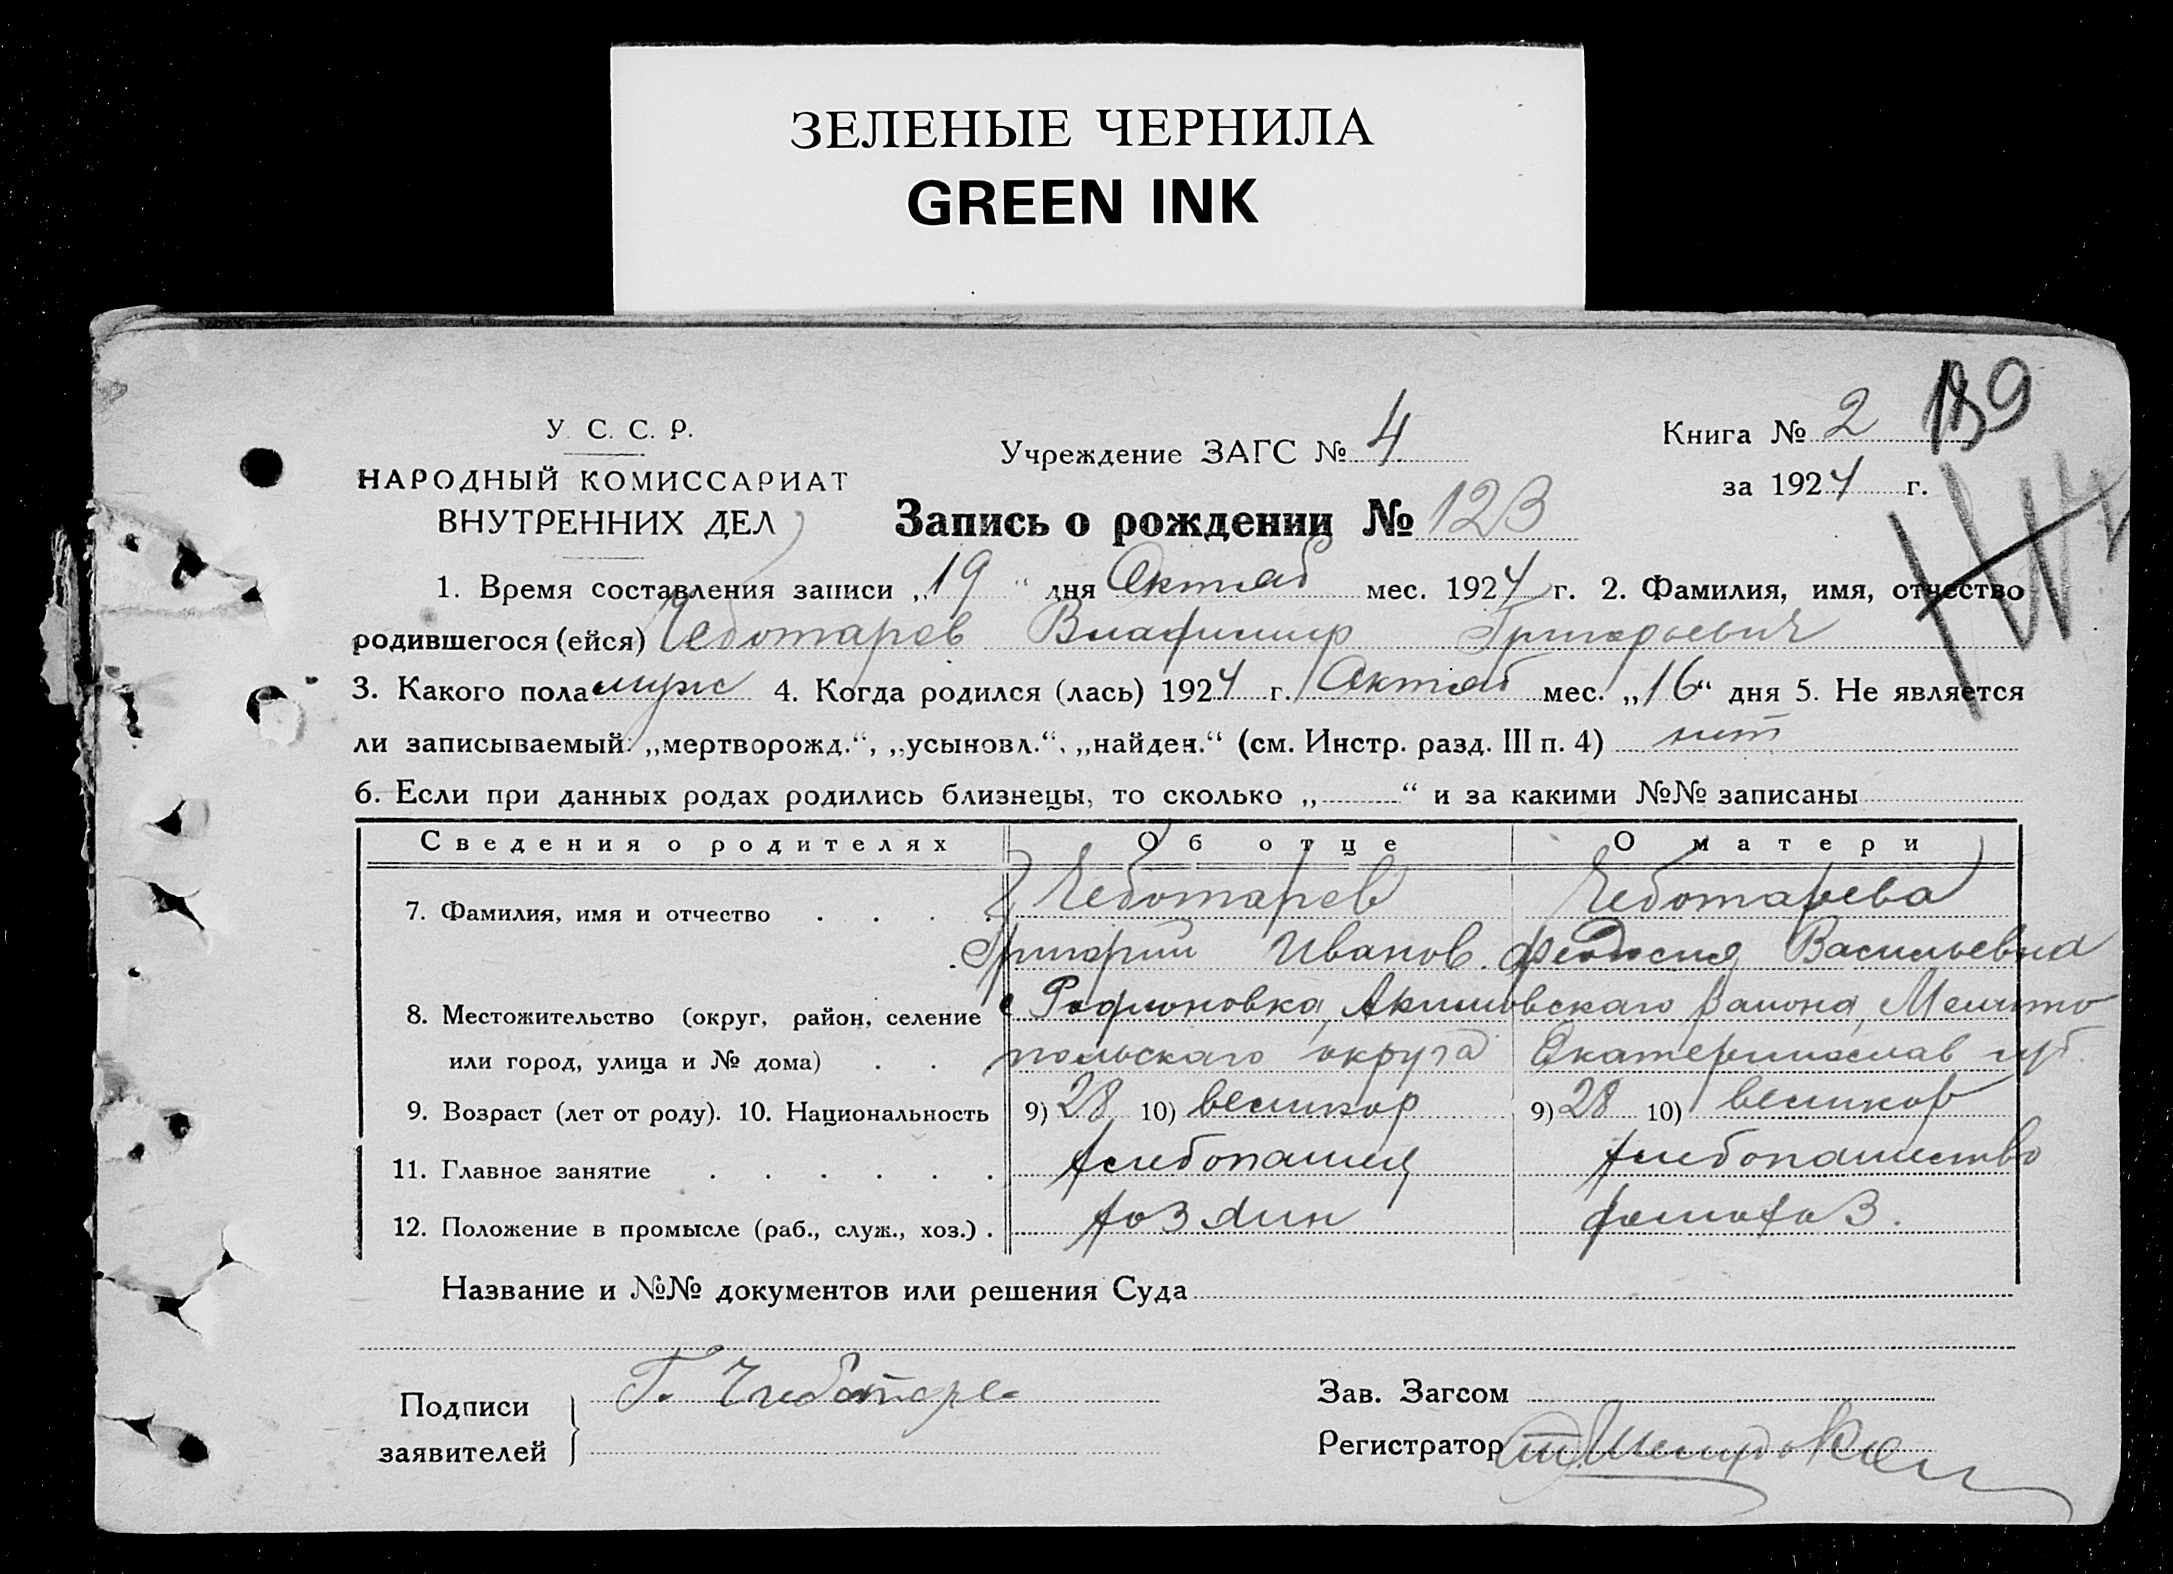 ЗЕЛЕНЫЕ ЧЕРНИЛА
GREEN INK
У. С. С. Р.
НАРОДНЫЙ КОМИССАРИАТ
ВНУТРЕННИХ ДЕЛ
Учреждение ЗАГС № 4
Книга № 2 139
за 1924 г.
Запись о рождении № 123
1. Время составления записи „19“ дня Октяб мес. 1924 г. 2. Фамилия, имя, отчество
родившегося (ейся) Чеботарев Владимир Григорьевич
3. Какого пола муж 4. Когда родился (лась) 1924 г. Октяб мес. „16“ дня 5. Не является
ли записываемый: „мертворожд.“, „усыновл.“, „найден.“ (см. Инстр. разд. III п. 4) нет
6. Если при данных родах родились близнецы, то сколько „ “ и за какими №№ записаны
Сведения о родителях Об отце О матери
7. Фамилия, имя и отчество Чеботарев Чеботарева
Григорий Иванов. Феодосия Васильевна
8. Местожительство (округ, район, селение с Родионовка, Акимовскаго района, Мелито
или город, улица и № дома) польскаго округа Екатеринослав губ.
9. Возраст (лет от роду). 10. Национальность 9) 28 10) великор 9) 28 10) великор
11. Главное занятие хлебопашец хлебопашество
12. Положение в промысле (раб., служ., хоз.) хозяин домохоз.
Название и №№ документов или решения Суда
Подписи
заявителей
Г. Чеботаре
Зав. Загсом
Регистратор